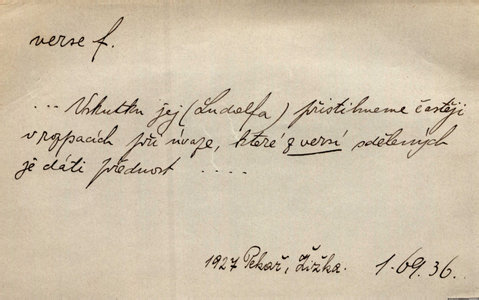 verse f.
... Vskutku jej (Ludolfa) přistihneme častěji
v rozpacích při úvaze, které z versí sdělených
je dáti přednost ....
1927 Pekař, Žižka. 1.69.36.